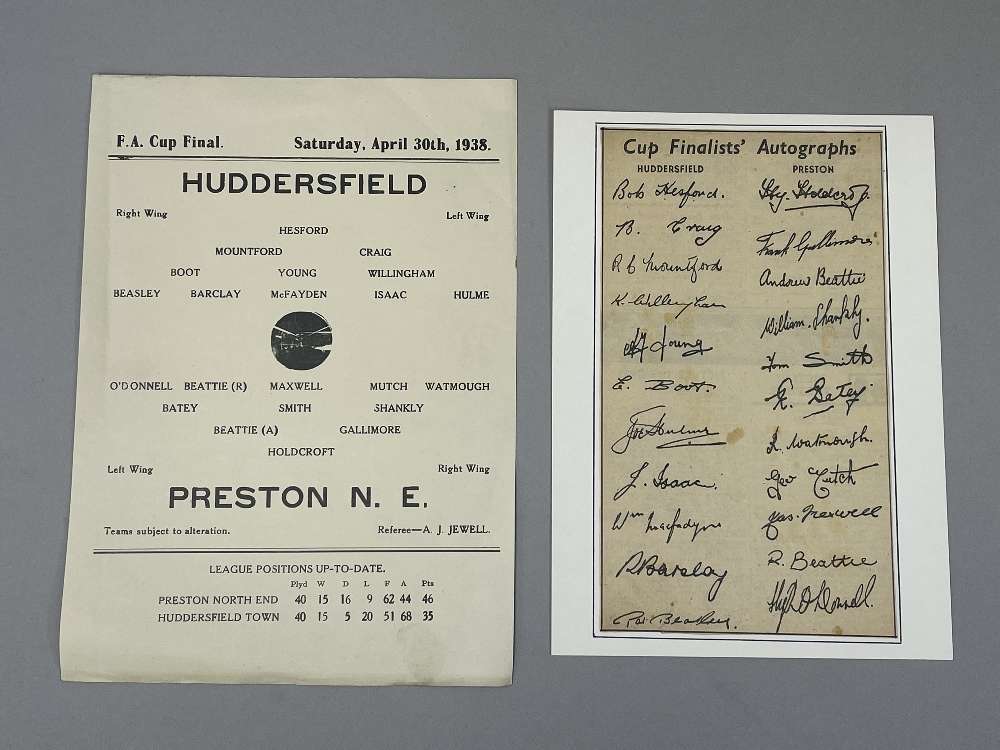 F.A. Cup Final. Saturday, April 30th, 1938.
HUDDERSFIELD
Right Wing Left Wing
HESFORD
MOUNTFORD CRAIG
BOOT YOUNG WILLINGHAM
BEASLEY BARCLAY McFAYDEN ISAAC HULME
O'DONNELL BEATTIE (R) MAXWELL MUTCH WATMOUGH
BATEY SMITH SHANKLY
BEATTIE (A) GALLIMORE
HOLDCROFT
Left Wing Right Wing
PRESTON N. E.
Teams subject to alteration. Referee—A. J. JEWELL.
LEAGUE POSITIONS UP-TO-DATE.
Plyd W D L F A Pts
PRESTON NORTH END 40 15 16 9 62 44 46
HUDDERSFIELD TOWN 40 15 5 20 51 68 35
Cup Finalists' Autographs
HUDDERSFIELD PRESTON
Bob Hesford. Hy. Holdcroft.
B. Craig Frank Gallimore
R C Mountford Andrew Beattie
K. Willingham William. Shankly.
A Young Tom Smith
E. Boot. R. Batey
Joe Hulme R. Watmough.
J. Isaac. Geo Mutch
Wm Macfadyen Jas. Maxwell
R Barclay R. Beattie
Pat Beasley. Hugh O'Donnell.